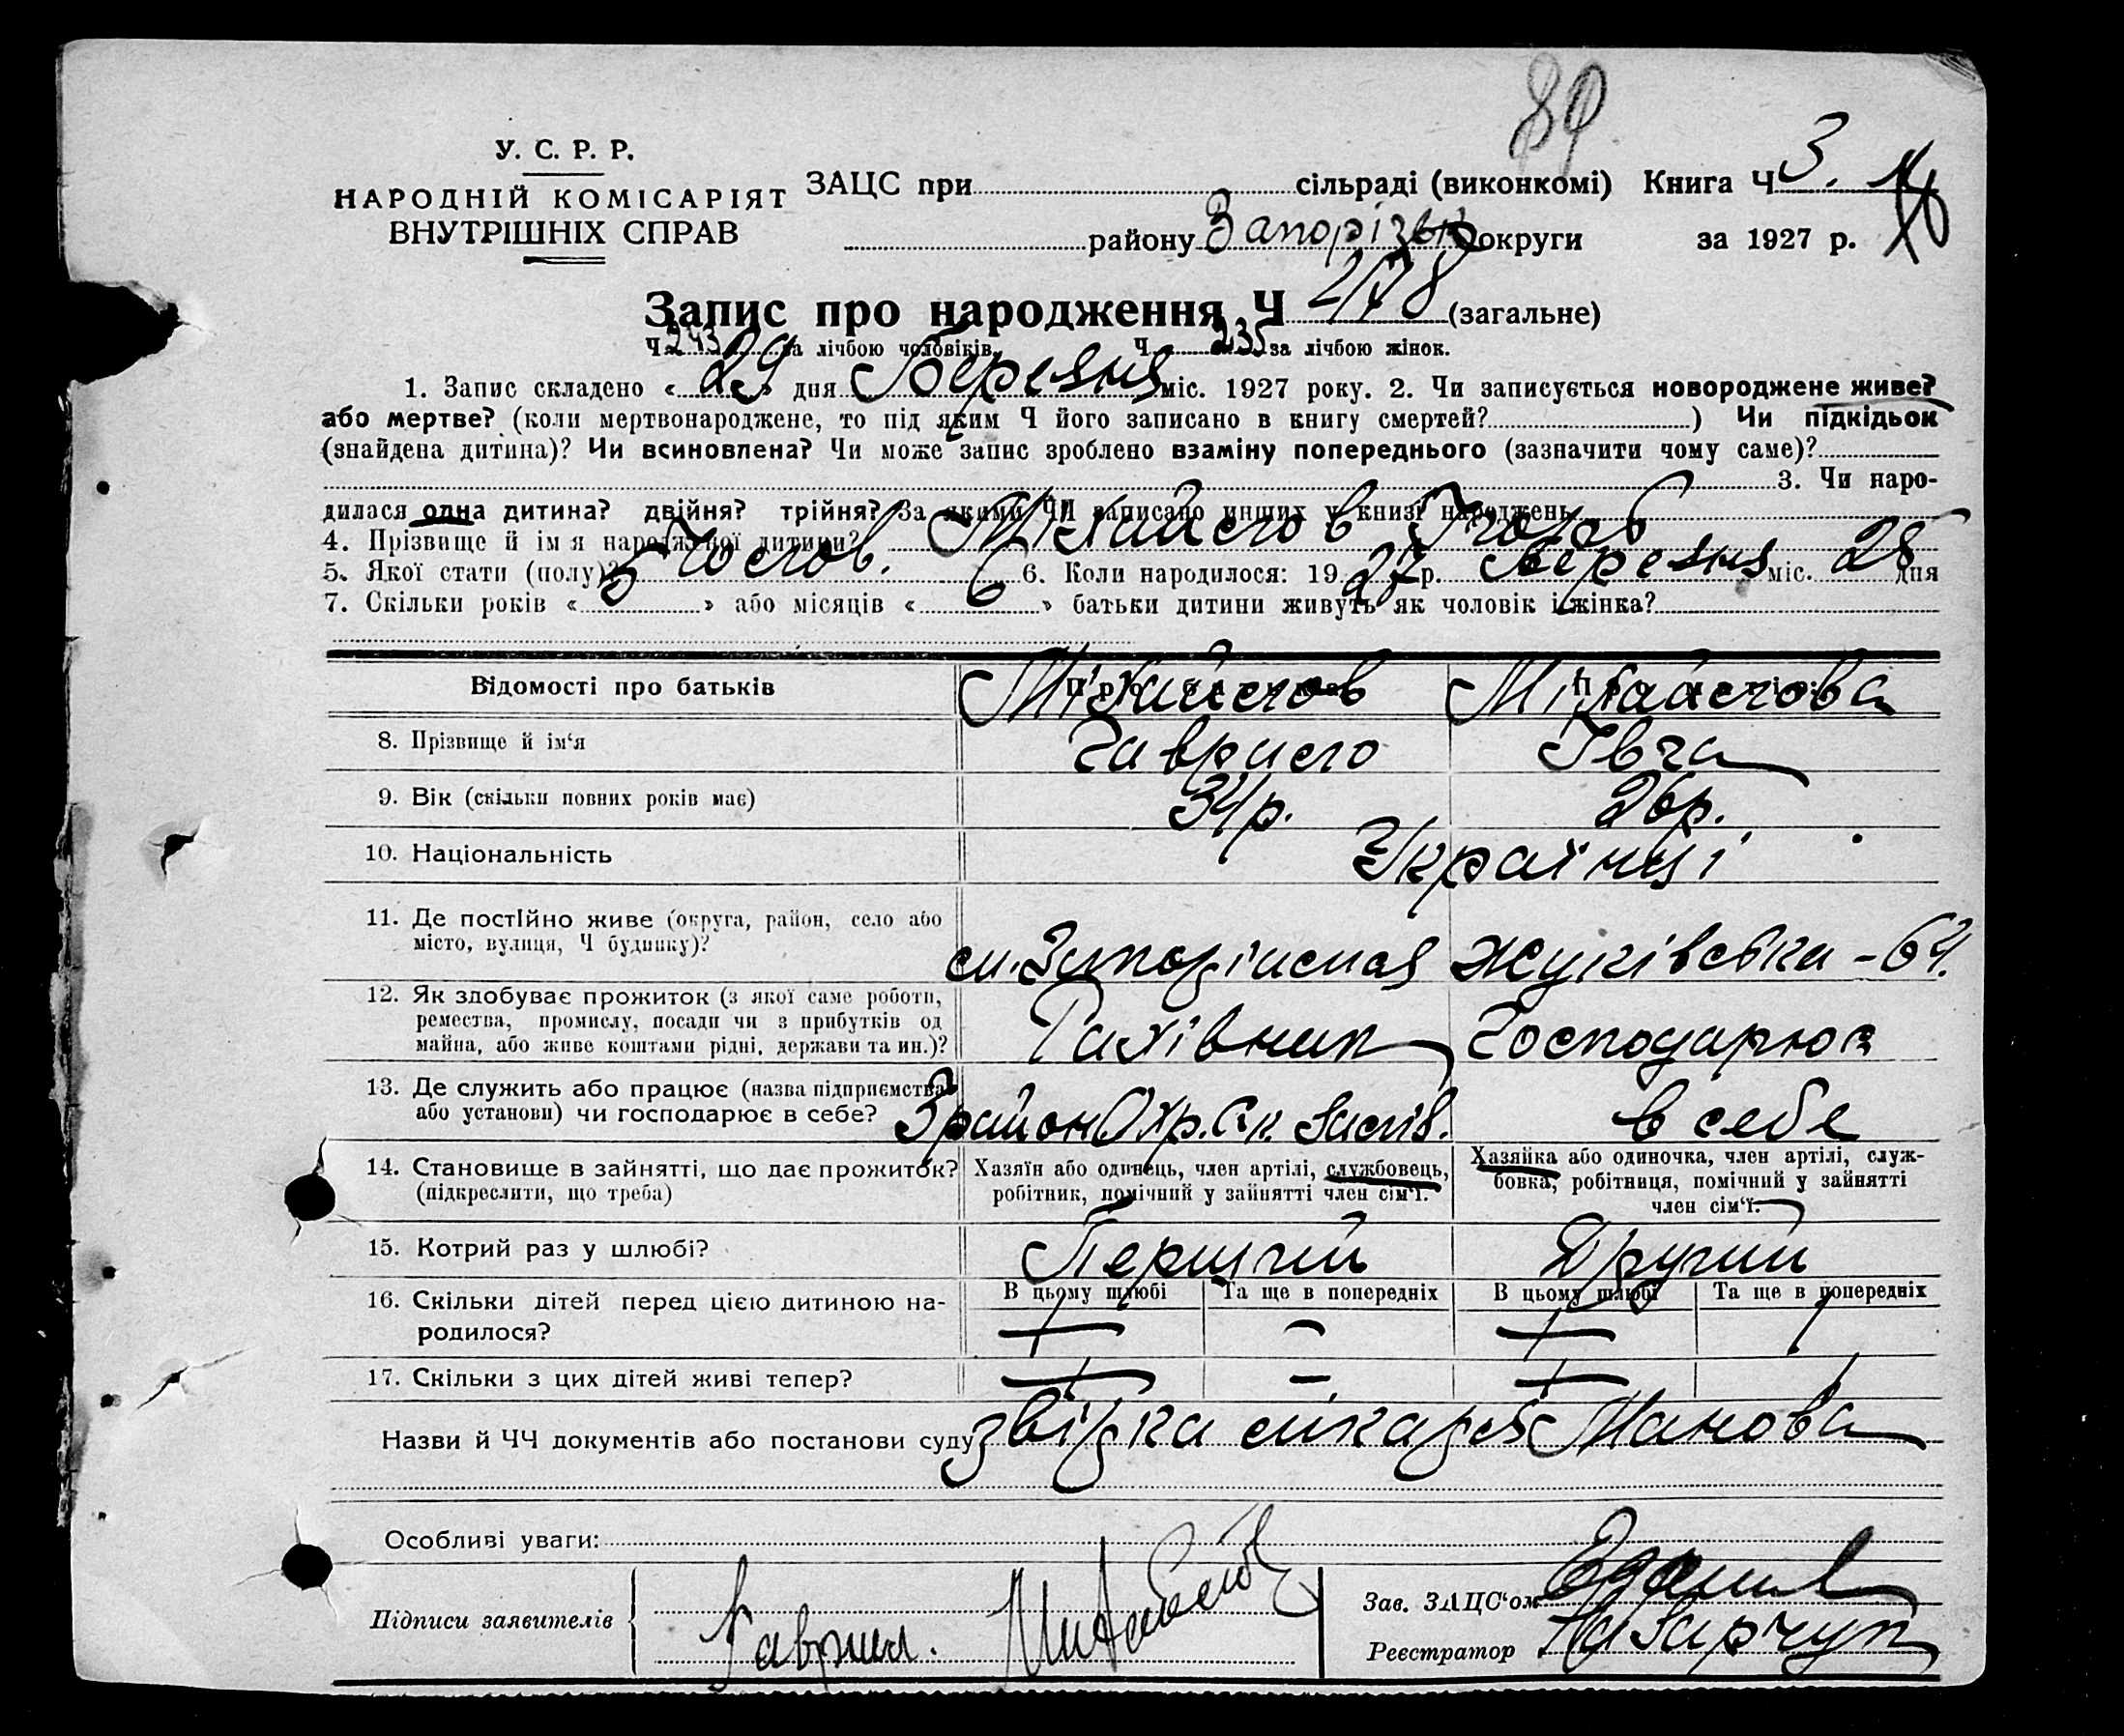 89
У. С. Р. Р.
НАРОДНІЙ КОМІСАРІЯТ
ВНУТРІШНІХ СПРАВ
ЗАЦС при сільраді (виконкомі) Книга Ч 3.
району округи за 1927 р.
Запис про народження Ч 478 (загальне)
Ч 243 за лічбою чоловіків Ч 235 за лічбою жінок.
1. Запис складено « 29 » дня Березня міс. 1927 року. 2. Чи записується новороджене живе?
або мертве? (коли мертвонароджене, то під яким Ч його записано в книгу смертей? ) Чи підкідьок
(знайдена дитина)? Чи всиновлена? Чи може запис зроблено взаміну попереднього (зазначити чому саме)?
3. Чи наро-
дилася одна дитина? двійня? трійня? За якими ЧЧ записано инших у книзі народжень
4. Прізвище й ім'я народженої дитини? Міхайлов
5. Якої стати (полу)? Чолов. 6. Коли народилося: 19 27 р. Березня міс. 28 дня
7. Скільки років « 5 » або місяців « 6 » батьки дитини живуть як чоловік і жінка?
Відомості про батьків Міхайлов Міхайлова
8. Прізвище й ім‘я Гаврило Ївга
9. Вік (скільки повних років має) 34 р. 26 р.
10. Національність Українці
11. Де постійно живе (округа, район, село або
місто, вулиця, Ч будинку)? Жуківська - 64.
12. Як здобуває прожиток (з якої саме роботи,
ремества, промислу, посади чи з прибутків од
майна, або живе коштами рідні, держави та ин.)? Рахівник Господарює
13. Де служить або працює (назва підприємства
або установи) чи господарює в себе? в себе
14. Становище в зайнятті, що дає прожиток?
(підкреслити, що треба)
Хазяїн або одинець, член артілі, службовець,
робітник, помічний у зайнятті член сім‘ї.
Хазяйка або одиночка, член артілі, служ-
бовка, робітниця, помічний у зайнятті
член сім‘ї.
15. Котрий раз у шлюбі? Перший Другий
16. Скільки дітей перед цією дитиною на-
родилося?
В цьому шлюбі Та ще в попередніх В цьому шлюбі Та ще в попередніх
1 — 1 1
17. Скільки з цих дітей живі тепер? 1 — 1 1
Назви й ЧЧ документів або постанови суду
Особливі уваги:
Підписи заявителів Гаврил.
Зав. ЗАЦС‘ом
Реєстратор Назарчук